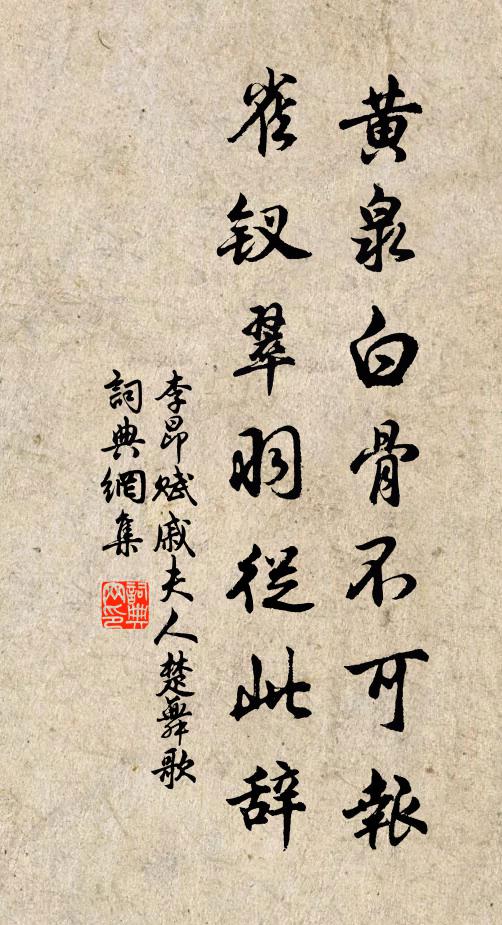 黄泉白骨不可報
雀釵翠羽從此辞
李昂賦戚夫人楚舞歌
詞典網集
詞典网印